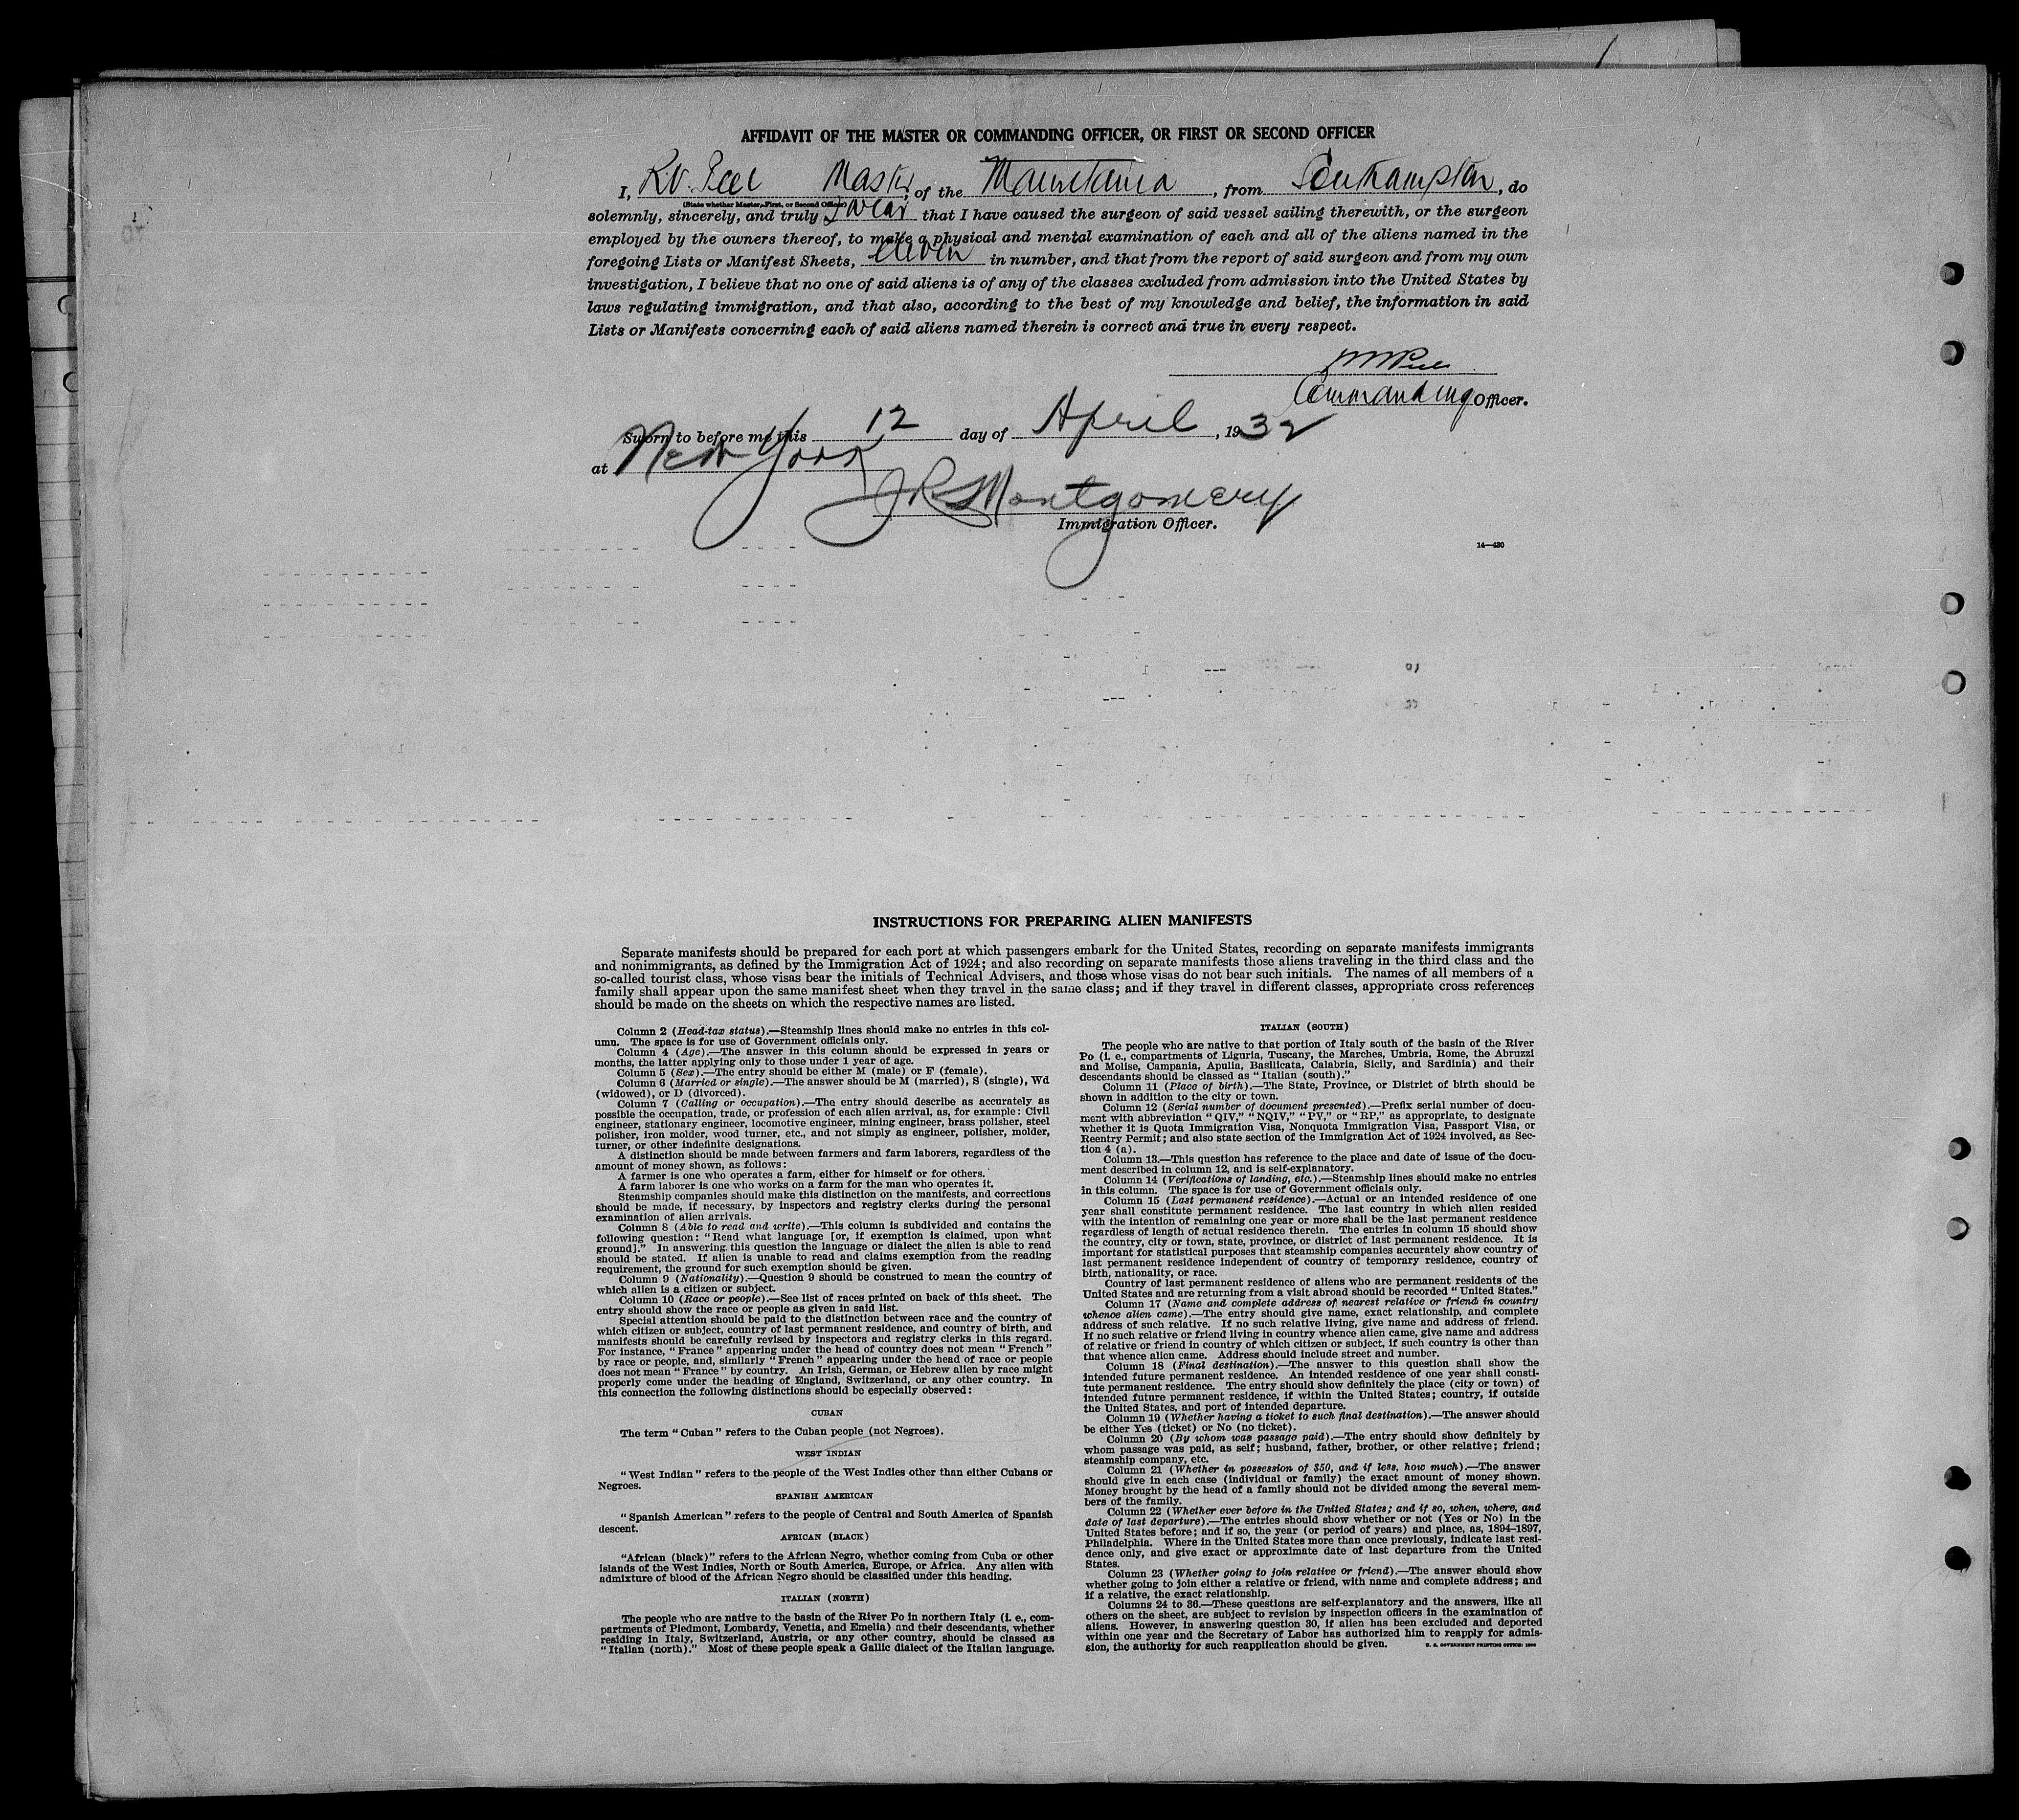 AFFIDAVIT OF THE MASTER OR COMMANDING OFFICER, OR FIRST OR SECOND OFFICER
I, R.V. Peel Master, of the Mauretania, from Southampton, do
(State whether Master, First, or Second Officer)
solemnly, sincerely, and truly swear that I have caused the surgeon of said vessel sailing therewith, or the surgeon
employed by the owners thereof, to make a physical and mental examination of each and all of the aliens named in the
foregoing Lists or Manifest Sheets, eleven in number, and that from the report of said surgeon and from my own
investigation, I believe that no one of said aliens is of any of the classes excluded from admission into the United States by
laws regulating immigration, and that also, according to the best of my knowledge and belief, the information in said
Lists or Manifests concerning each of said aliens named therein is correct and true in every respect.
Commanding Officer.
Sworn to before me this 12 day of April, 1932
at New York
J R Montgomery
Immigration Officer.
14—420
INSTRUCTIONS FOR PREPARING ALIEN MANIFESTS
Separate manifests should be prepared for each port at which passengers embark for the United States, recording on separate manifests immigrants
and nonimmigrants, as defined by the Immigration Act of 1924; and also recording on separate manifests those aliens traveling in the third class and the
so-called tourist class, whose visas bear the initials of Technical Advisers, and those whose visas do not bear such initials. The names of all members of a
family shall appear upon the same manifest sheet when they travel in the same class; and if they travel in different classes, appropriate cross references
should be made on the sheets on which the respective names are listed.
Column 2 (Head-tax status).—Steamship lines should make no entries in this col-
umn. The space is for use of Government officials only.
Column 4 (Age).—The answer in this column should be expressed in years or
months, the latter applying only to those under 1 year of age.
Column 5 (Sex).—The entry should be either M (male) or F (female).
Column 6 (Married or single).—The answer should be M (married), S (single), Wd
(widowed), or D (divorced).
Column 7 (Calling or occupation).—The entry should describe as accurately as
possible the occupation, trade, or profession of each alien arrival, as, for example: Civil
engineer, stationary engineer, locomotive engineer, mining engineer, brass polisher, steel
polisher, iron molder, wood turner, etc., and not simply as engineer, polisher, molder,
turner, or other indefinite designations.
A distinction should be made between farmers and farm laborers, regardless of the
amount of money shown, as follows:
A farmer is one who operates a farm, either for himself or for others.
A farm laborer is one who works on a farm for the man who operates it.
Steamship companies should make this distinction on the manifests, and corrections
should be made, if necessary, by inspectors and registry clerks during the personal
examination of alien arrivals.
Column 8 (Able to read and write).—This column is subdivided and contains the
following question: "Read what language [or, if exemption is claimed, upon what
ground]." In answering this question the language or dialect the alien is able to read
should be stated. If alien is unable to read and claims exemption from the reading
requirement, the ground for such exemption should be given.
Column 9 (Nationality).—Question 9 should be construed to mean the country of
which alien is a citizen or subject.
Column 10 (Race or people).—See list of races printed on back of this sheet. The
entry should show the race or people as given in said list.
Special attention should be paid to the distinction between race and the country of
which citizen or subject, country of last permanent residence, and country of birth, and
manifests should be carefully revised by inspectors and registry clerks in this regard.
For instance, "France" appearing under the head of country does not mean "French"
by race or people, and, similarly "French" appearing under the head of race or people
does not mean "France" by country. An Irish, German, or Hebrew alien by race might
properly come under the heading of England, Switzerland, or any other country. In
this connection the following distinctions should be especially observed:
CUBAN
The term "Cuban" refers to the Cuban people (not Negroes).
WEST INDIAN
"West Indian" refers to the people of the West Indies other than either Cubans or
Negroes.
SPANISH AMERICAN
"Spanish American" refers to the people of Central and South America of Spanish
descent.
AFRICAN (BLACK)
"African (black)" refers to the African Negro, whether coming from Cuba or other
islands of the West Indies, North or South America, Europe, or Africa. Any alien with
admixture of blood of the African Negro should be classified under this heading.
ITALIAN (NORTH)
The people who are native to the basin of the River Po in northern Italy (i. e., com-
partments of Piedmont, Lombardy, Venetia, and Emelia) and their descendants, whether
residing in Italy, Switzerland, Austria, or any other country, should be classed as
"Italian (north)." Most of these people speak a Gallic dialect of the Italian language.
ITALIAN (SOUTH)
The people who are native to that portion of Italy south of the basin of the River
Po (i. e., compartments of Liguria, Tuscany, the Marches, Umbria, Rome, the Abruzzi
and Molise, Campania, Apulia, Basilicata, Calabria, Sicily, and Sardinia) and their
descendants should be classed as "Italian (south)."
Column 11 (Place of birth).—The State, Province, or District of birth should be
shown in addition to the city or town.
Column 12 (Serial number of document presented).—Prefix serial number of docu-
ment with abbreviation "QIV," "NQIV," "PV," or "RP," as appropriate, to designate
whether it is Quota Immigration Visa, Nonquota Immigration Visa, Passport Visa, or
Reentry Permit; and also state section of the Immigration Act of 1924 involved, as Sec-
tion 4 (a).
Column 13.—This question has reference to the place and date of issue of the docu-
ment described in column 12, and is self-explanatory.
Column 14 (Verifications of landing, etc.).—Steamship lines should make no entries
in this column. The space is for use of Government officials only.
Column 15 (Last permanent residence).—Actual or an intended residence of one
year shall constitute permanent residence. The last country in which alien resided
with the intention of remaining one year or more shall be the last permanent residence
regardless of length of actual residence therein. The entries in column 15 should show
the country, city or town, state, province, or district of last permanent residence. It is
important for statistical purposes that steamship companies accurately show country of
last permanent residence independent of country of temporary residence, country of
birth, nationality, or race.
Country of last permanent residence of aliens who are permanent residents of the
United States and are returning from a visit abroad should be recorded "United States."
Column 17 (Name and complete address of nearest relative or friend in country
whence alien came).—The entry should give name, exact relationship, and complete
address of such relative. If no such relative living, give name and address of friend.
If no such relative or friend living in country whence alien came, give name and address
of relative or friend in country of which citizen or subject, if such country is other than
that whence alien came. Address should include street and number.
Column 18 (Final destination).—The answer to this question shall show the
intended future permanent residence. An intended residence of one year shall consti-
tute permanent residence. The entry should show definitely the place (city or town) of
intended future permanent residence, if within the United States; country, if outside
the United States, and port of intended departure.
Column 19 (Whether having a ticket to such final destination).—The answer should
be either Yes (ticket) or No (no ticket).
Column 20 (By whom was passage paid).—The entry should show definitely by
whom passage was paid, as self; husband, father, brother, or other relative; friend;
steamship company, etc.
Column 21 (Whether in possession of $50, and if less, how much).—The answer
should give in each case (individual or family) the exact amount of money shown.
Money brought by the head of a family should not be divided among the several mem-
bers of the family.
Column 22 (Whether ever before in the United States; and if so, when, where, and
date of last departure).—The entries should show whether or not (Yes or No) in the
United States before; and if so, the year (or period of years) and place, as, 1894–1897,
Philadelphia. Where in the United States more than once previously, indicate last resi-
dence only, and give exact or approximate date of last departure from the United
States.
Column 23 (Whether going to join relative or friend).—The answer should show
whether going to join either a relative or friend, with name and complete address; and
if a relative, the exact relationship.
Columns 24 to 36.—These questions are self-explanatory and the answers, like all
others on the sheet, are subject to revision by inspection officers in the examination of
aliens. However, in answering question 30, if alien has been excluded and deported
within one year and the Secretary of Labor has authorized him to reapply for admis-
sion, the authority for such reapplication should be given.
U. S. GOVERNMENT PRINTING OFFICE: